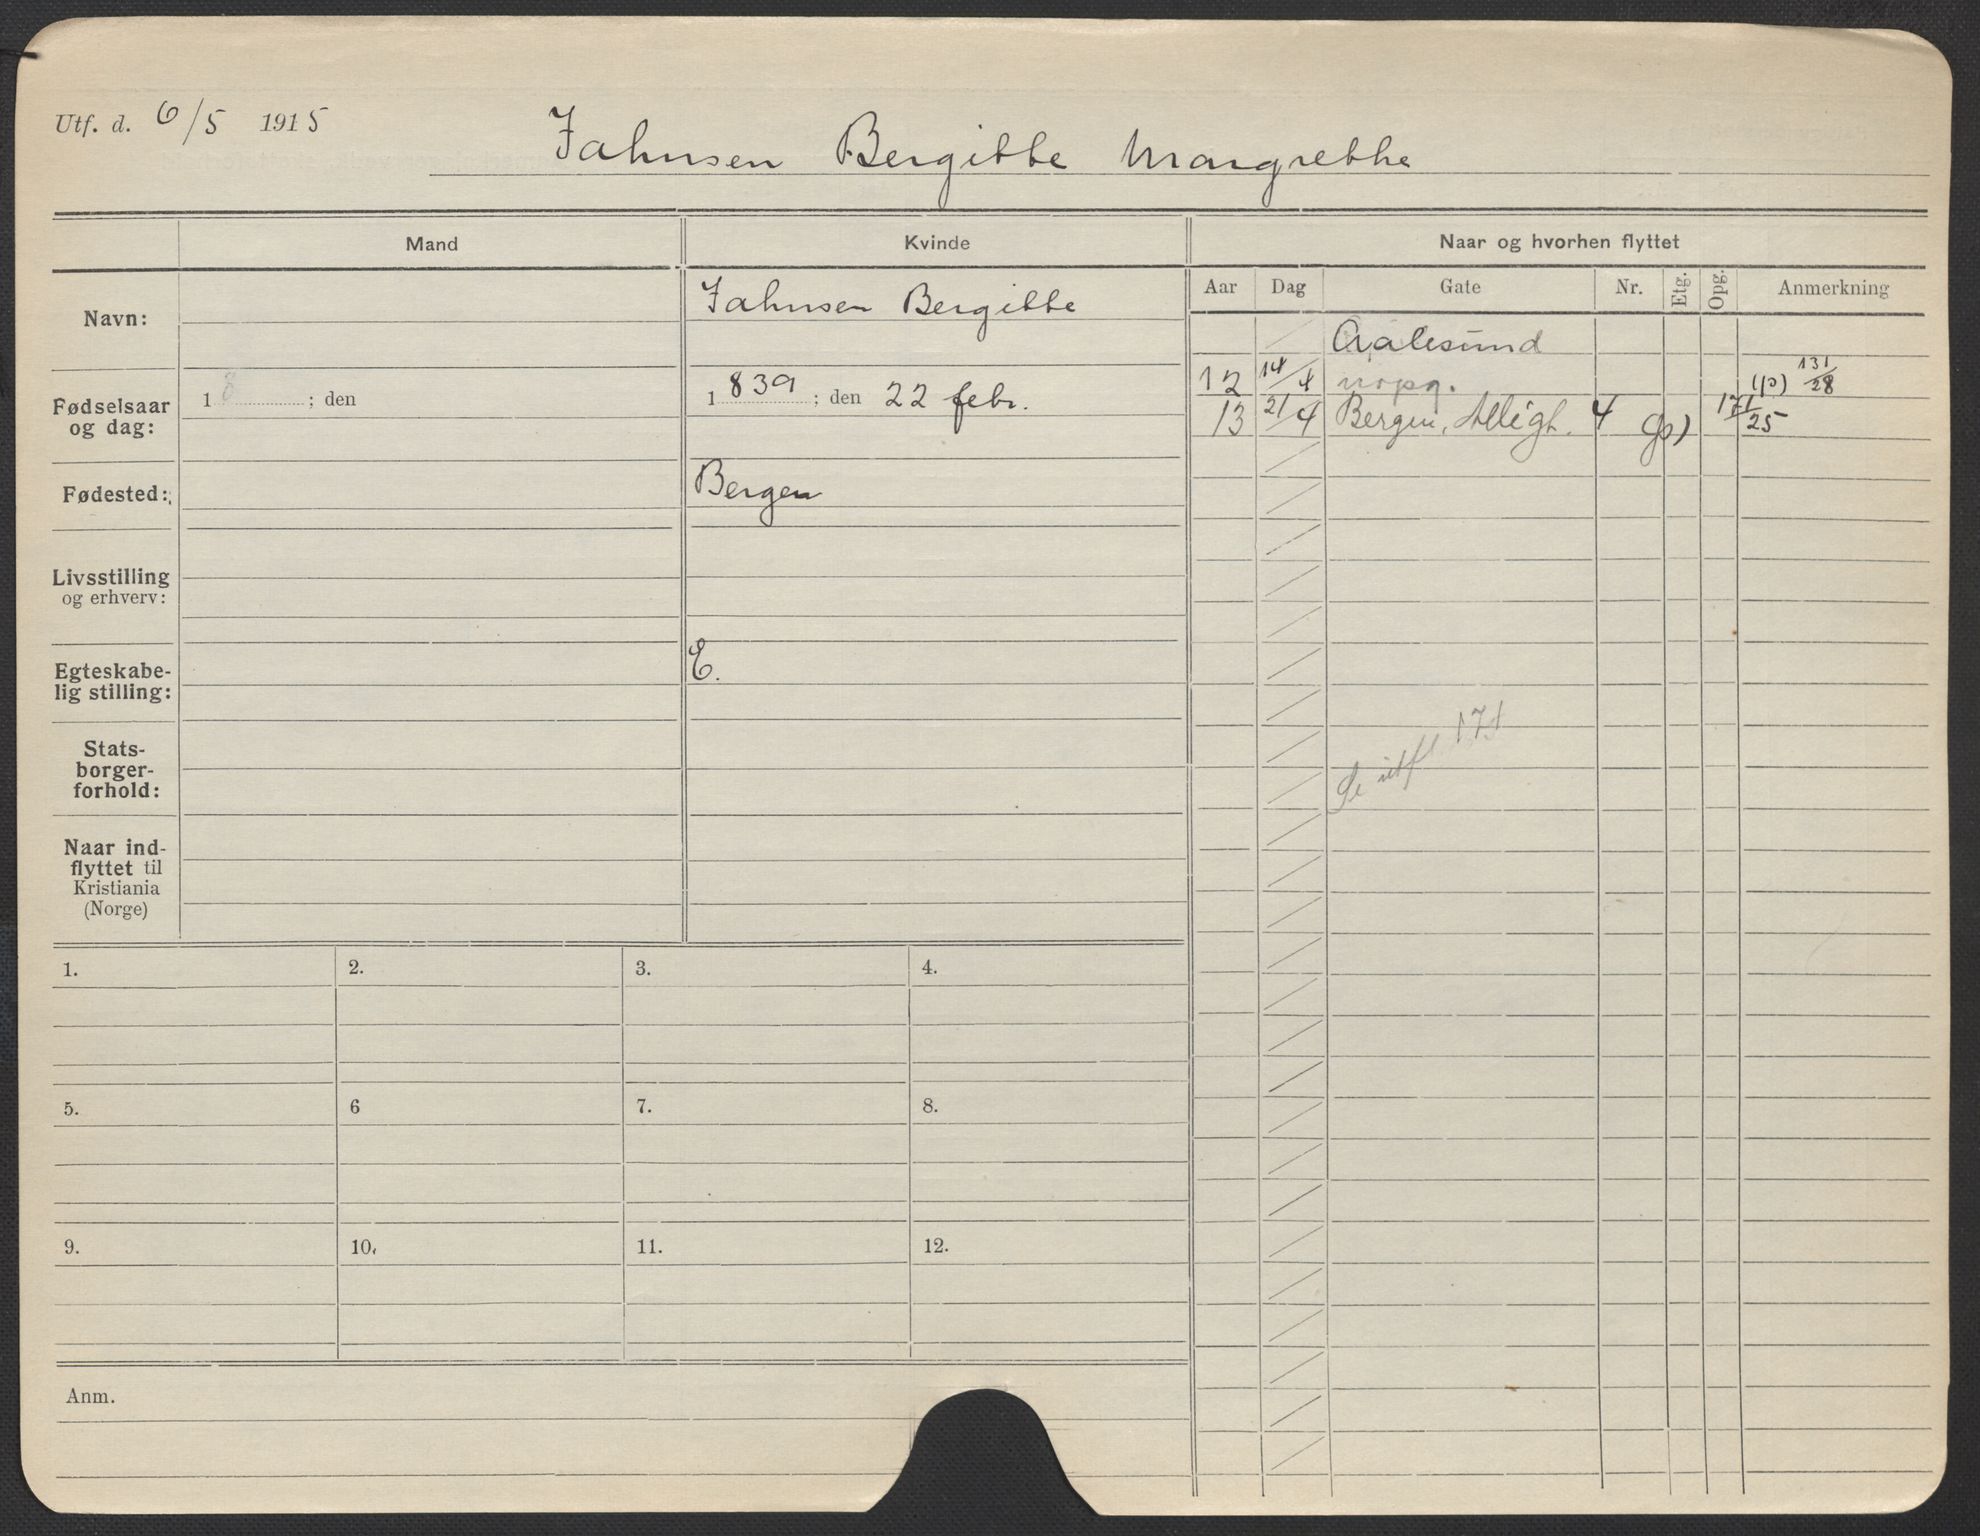 Utf. d. 6/5 1915
Jahnsen Bergitte Margrethe
Mand
Kvinde
Naar og hvorhen flyttet
Aar Dag Gate Nr. Etg. Opg. Anmerkning
Navn:
Jahnsen Bergitte
Aalesund
12 14/4 uopg. (p) 131/28
13 21/4 Bergen, Allégt. 4 (p) 171/25
Fødselsaar
og dag:
18 ; den
1839 ; den 22 febr.
Fødested:
Bergen
Livsstilling
og erhverv:
Egteskabe-
lig stilling:
E.
Stats-
borger-
forhold:
Se utfl. 171
Naar ind-
flyttet til
Kristiania
(Norge)
1. 2. 3. 4.
5. 6 7. 8.
9. 10. 11. 12.
Anm.